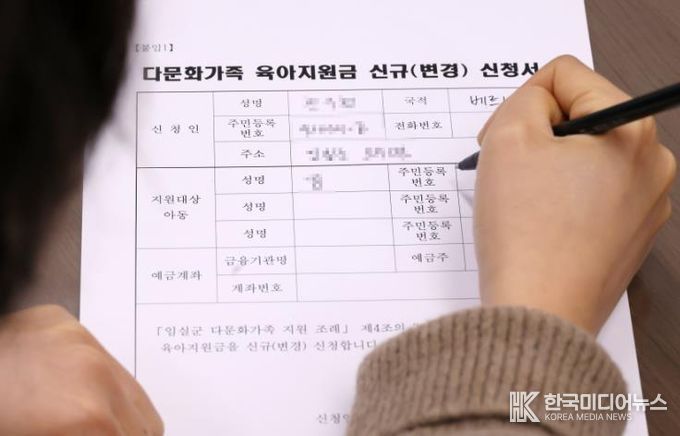 [붙임1]
다문화가족 육아지원금 신규(변경) 신청서
신 청 인
성명
국적
주민등록
번호
전화번호
주소
지원대상
아동
성명
주민등록
번호
성명
주민등록
번호
성명
주민등록
번호
예금계좌
금융기관명
예금주
계좌번호
「임실군 다문화가족 지원 조례」 제4조의
육아지원금을 신규(변경) 신청합니다
신청인
한국미디어뉴스
KOREA MEDIA NEWS